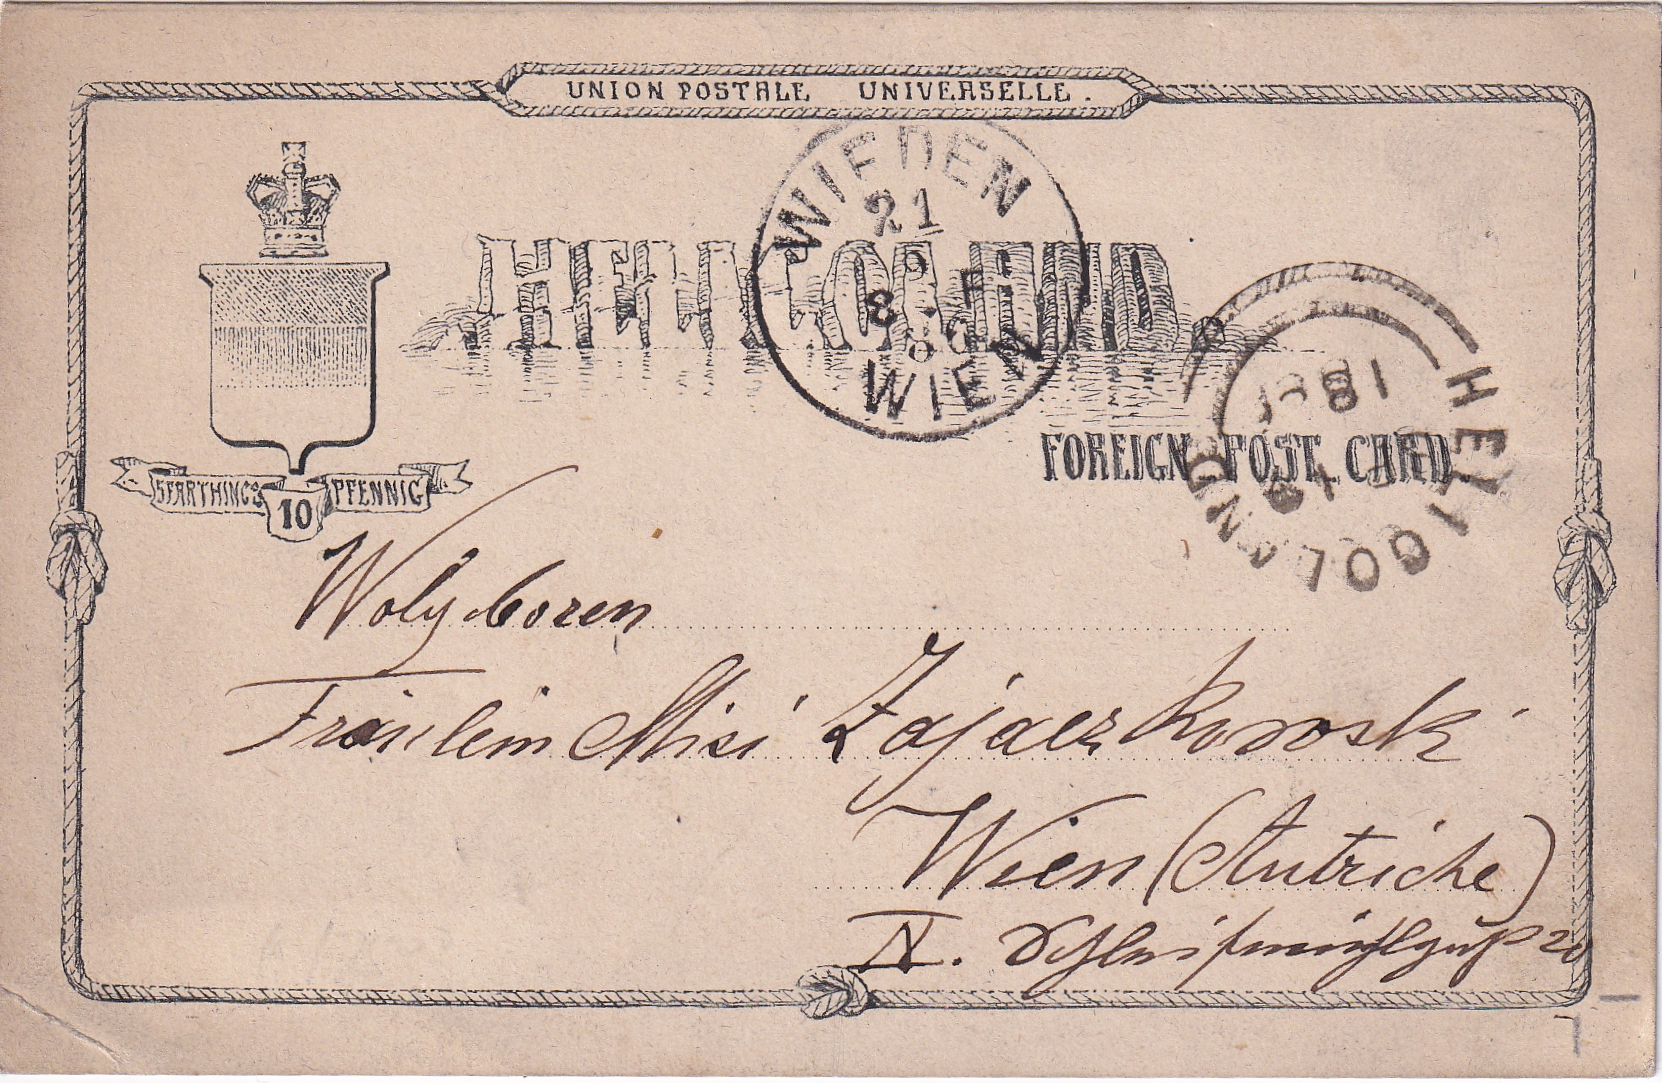 UNION POSTALE UNIVERSELLE.
HELIGOLAND
FOREIGN POST CARD
5 FARTHINGS 10 PFENNIG
WIEDEN
21
9
8
86
WIEN
HELIGOLAND
Wolgeboren
Fräulein Misi Zajaczkowski
Wien (Autriche)
IV. 20